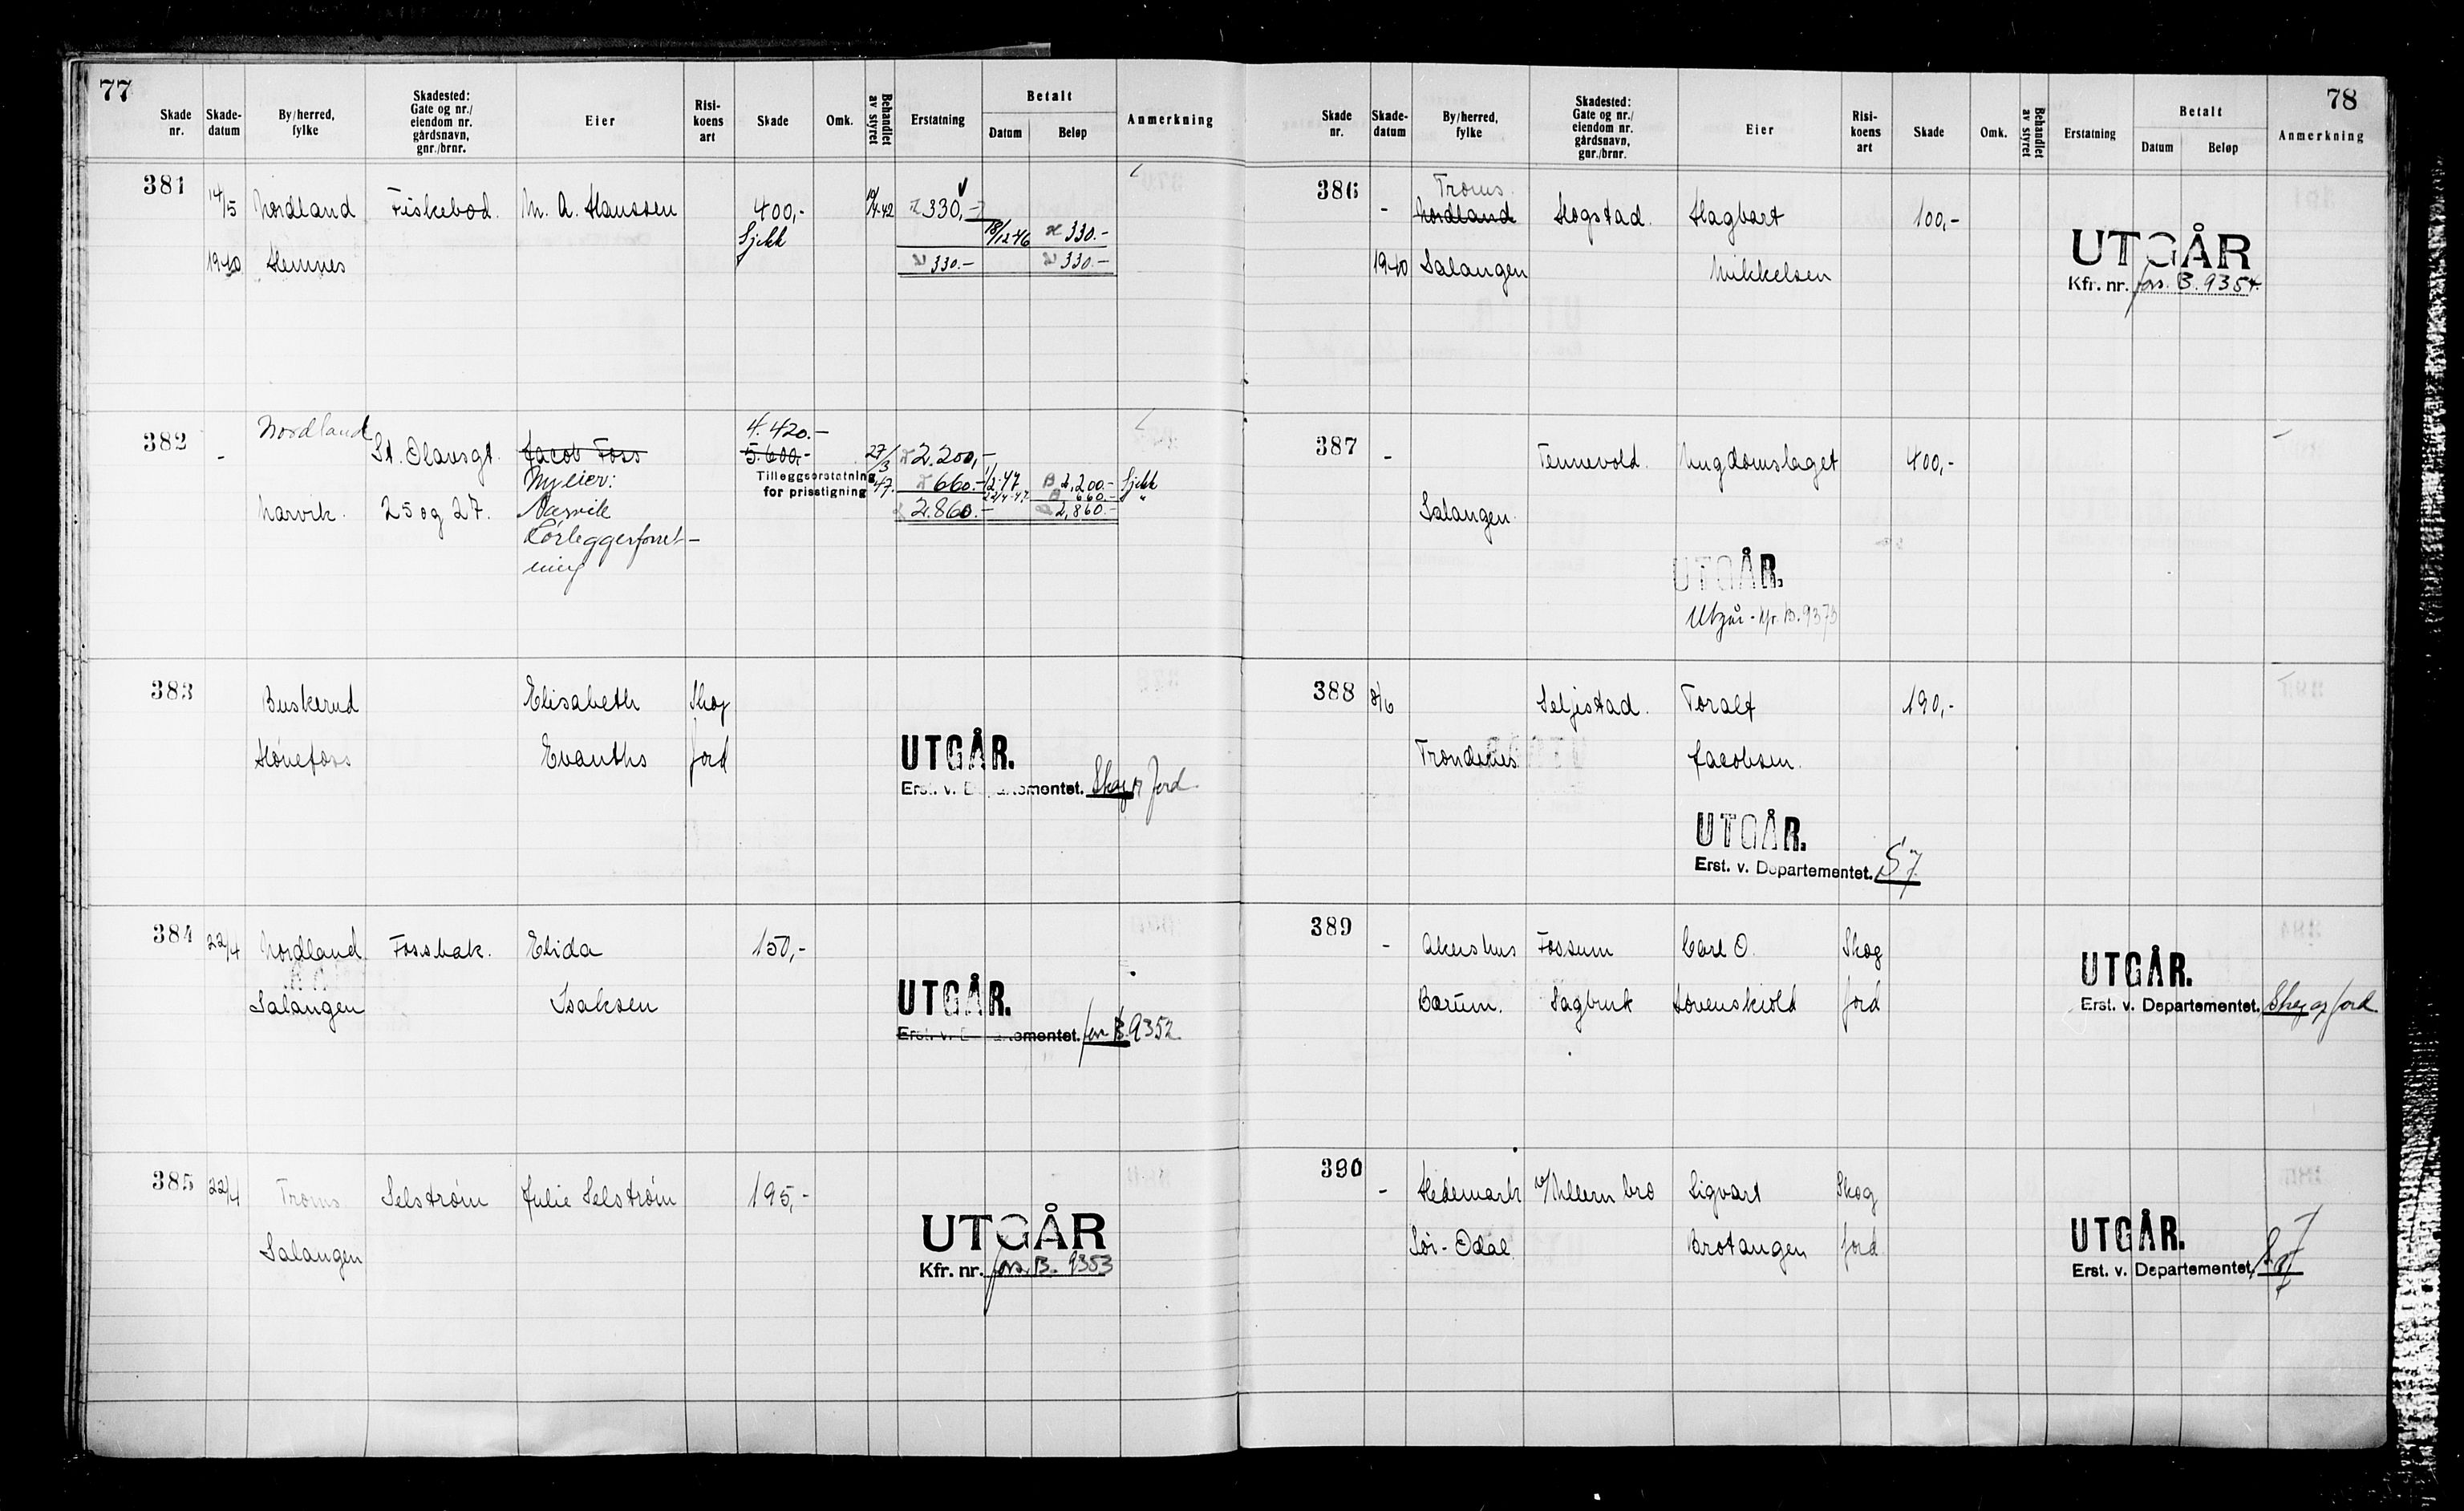 77
Skade nr. Skade-datum By/herred, fylke Skadested: Gate og nr./ eiendom nr. gårdsnavn, gnr./brnr. Eier Risi-koens art Skade Omk. Behandlet av styret Erstatning Betalt Datum Beløp Anmerkning
381 14/5 Nordland Fiskebød. M. A. Hanssen 400,- 10/4-42 330,-
Sjekk 18/12 46 330.-
1940 Hemnes 330.- 330.-
382 - Nordland 4.420.-
St. Olavsgt. Jacob Foss 5.600,- 27/3 47. 2.200,-
Ny eier: Tilleggserstatning for prisstigning 660.- 2.200.- Sjekk
660.- "
Narvik. 25 og 27. Næsvik 2.860.- 2,860.-
Rørleggerforret-
ning
383 Buskerud Elisabeth Skog
Hønefoss Evanths jord
UTGÅR.
Erst. v. Departementet. Skog og jord.
384 22/4 Nordland Fossbak. Elida 150,-
Salangen Isaksen
UTGÅR.
Erst. v. Departementet. fors B. 9352.
385 22/4 Troms Selstrøm Julie Selstrøm 195,-
Salangen
UTGÅR
Kfr. nr. fors. B. 9353
78
Skade nr. Skade-datum By/herred, fylke Skadested: Gate og nr./ eiendom nr. gårdsnavn, gnr./brnr. Eier Risi-koens art Skade Omk. Behandlet av styret Erstatning Betalt Datum Beløp Anmerkning
386 Troms.
- Nordland Høgstad. Hagbart 100,-
1940 Salangen Mikkelsen
UTGÅR
Kfr. nr. fors. B. 9354.
387 - Tennevold. Ungdomslaget 400,-
Salangen.
UTGÅR.
Utgår - kfr. B. 9373
388 8/6 Seljestad. Toralf 190,-
Trondenes Jacobsen.
UTGÅR.
Erst. v. Departementet. S 7
389 - Akershus Fossum Carl O. Skog
Bærum. Sagbruk Løvenskiold jord
UTGÅR.
Erst. v. Departementet. Skog og jord.
390 - Hedemark v/Ullern bro Sigvart Skog
Sør-Odal. Brotangen jord
UTGÅR.
Erst. v. Departementet.